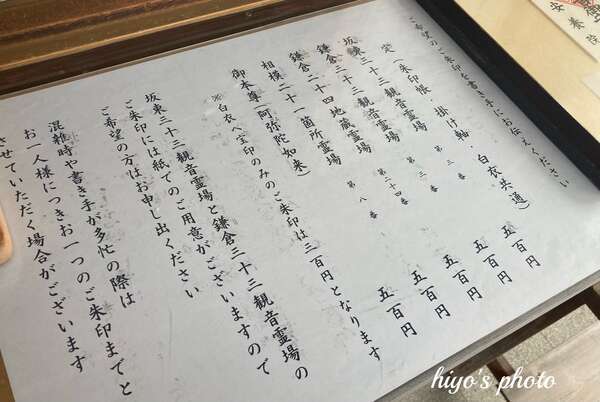 ご希望のご朱印を書き手にお伝えください
(朱印帳・掛け軸・白衣共通)
坂東三十三観音霊場 第三番 五百円
鎌倉三十三観音霊場 第三番 五百円
鎌倉二十四地蔵霊場 第二十四番 五百円
相模二十一箇所霊場 第八番 五百円
御本尊(阿弥陀如来) 五百円
※白衣へ宝印のみのご朱印は三百円となります
坂東三十三観音霊場と鎌倉三十三観音霊場の
ご朱印には紙でのご用意がございますので
ご希望の方はお申し出ください
混雑時や書き手が多忙の際は
お一人様につきお一つのご朱印までと
させていただく場合がございます
安養院
hiyo's photo